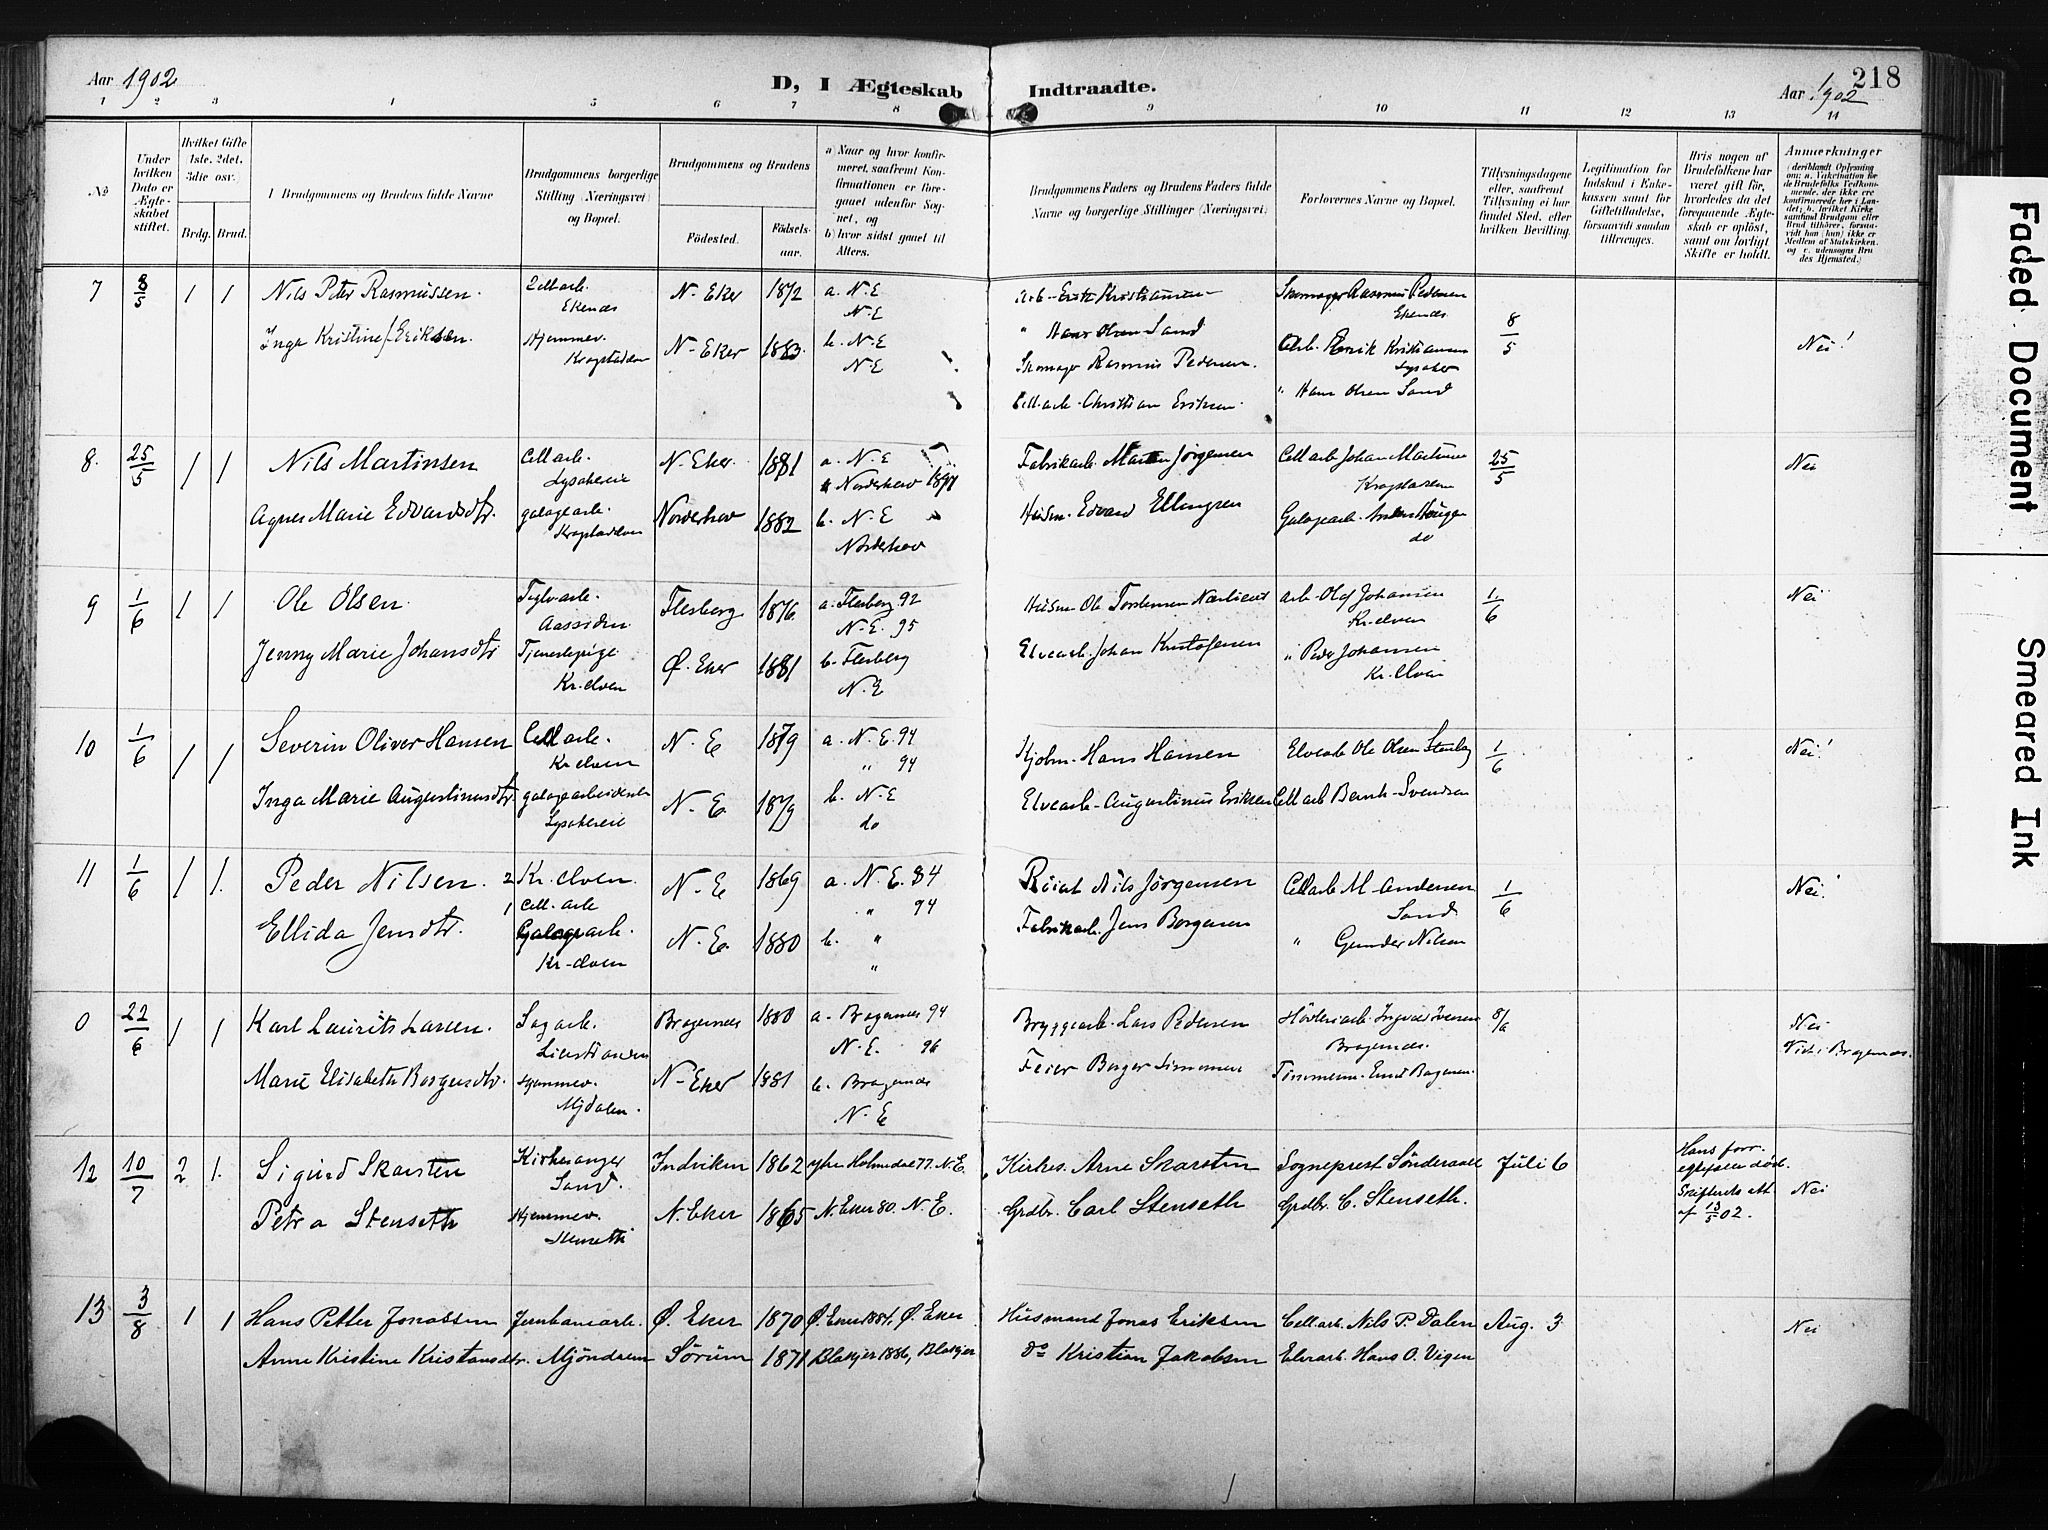 Aar 1902
D, I Ægteskab Indtraadte.
Aar 1902
218
1 2 3 4 5 6 7 8 9 10 11 12 13 14
No
Under hvilken Dato er Ægteskabet stiftet.
Hvilket Gifte 1ste, 2det, 3die osv.
Brdg. Brud.
I Brudgommens og Brudens fulde Navne
Brudgommens borgerlige Stilling (Næringsvei) og Bopæl.
Brudgommens og Brudens
Födested.
Födselsaar.
a) Naar og hvor konfirmeret, saafremt Konfirmationen er foregaaet udenfor Sognet, og
b) hvor sidst gaaet til Alters.
Brudgommens Faders og Brudens Faders fulde Navne og borgerlige Stillinger (Næringsvei)
Forlovernes Navne og Bopæl.
Tillysningsdagene eller, saafremt Tillysning ei har fundet Sted, efter hvilken Bevilling.
Legitimation for Indskud i Enkekassen samt for Giftetilladelse, forsaavidt saadan tiltrænges.
Hvis nogen af Brudefolkene har været gift för, hvorledes da det foregaaende Ægteskab er oplöst, samt om lovligt Skifte er holdt.
Anmærkninger
7 8/5 1 1 Nils Peter Rasmussen. Cellarb. Ekenes N. Eker 1872 a. N. E N. E
Inga Kristine Eriksen. Hjemmev. Krogstadelven N. Eker 1883. b. N. E N. E
Arb. Erik Kristiansen
" Hans Olsen Sand
Skomager Rasmus Pedersen.
Cell.arb. Christian Eriksen.
Skomager Rasmus Pedersen Ekenes
Arb. Erik Kristiansen
" Hans Olsen Sand
8/5
Nei!
8. 25/5 1 1 Nils Martinsen Cellarb. N. Eker. 1881 a. N. E
Norderhov 1897
Agnes Marie Edvardsdtr. galogearb. Norderhov 1882 b. N. E
Norderhov
Fabrikarb. Martin Jörgensen Cellarb Johan Martinsen
Husm. Edvard Ellingsen Galogearb. Anders Haugen
do
25/5
Nei
9 1/6 1 1 Ole Olsen. Teglv.arb. Aassiden. Flesberg 1876. a. Flesberg 92
N. E. 95
Jenny Marie Johansdtr Tjenestepige Kr. elven Ø. Eker 1881 b. Flesberg
N. E
Husm Ole Torstensen arb. Olaf Johansen
Kr. elven
Elvearb. Johan Kristofersen " Peder Johansen
Kr. Elven
1/6
Nei
10 1/6 1 1 Severin Oliver Hansen Cellarb. Kr. elven N. E 1879 a. N. E. 94
" 94
Inga Marie Augustinusdtr. galogearbeiderske N. E. 1879 b. N. E
do
Hans Hansen Elvearb Ole Olsen
Elvearb. Augustinus Eriksen Cellarb Bernh. Svendsen
1/6
Nei!
11 1/6 1 1. Peder Nilsen. 2 Kr. elven. N. E 1869 a. N. E. 84
1 Cell. arb " 94
Ellida Jensdtr. Galogearb. Kr. elven N. E. 1880 b. "
"
Nils Jörgensen Cellarb M. Andersen
Sand
Fabrikarb. Jens Borgersen " Gunder Nilsen
1/6
Nei!
0 22/6 1 1 Karl Laurits Larsen. Sagarb. Lierstranden Bragernes 1880 a. Bragernes 94
N. E. 96
Marie Elisabeth Borgersdtr. Hjemmev. Mjdalen. N. Eker 1881 b. Bragernes
N. E
Bryggearb. Lars Pedersen Hövleriarb. Ingvald Iversen
Bragernes.
Feier Borger Simonsen Tömmerm. Emil Borgersen.
8/6
Nei
Viet i Bragernes.
12 10/7 2 1. Sigurd Skarsten Kirkesanger Sand. Indviken 1862 Holmedal 77. N. E.
Petra Stenseth Hjemmev. Stenseth N. Eker 1865 N. Eker 80. N. E.
Kirkes. Arne Skarsten Sogneprest Sönderaal Juli 6
Grdbr. Carl Stenseth Grdbr. C. Stenseth.
Hans forr. egtefelle död.
Skifterets att. af 13/5 02.
Nei
13 3/8 1 1 Hans Petter Jonassen Jernbanearb. Ø. Eker 1870 Ø. Eker 1884, Ø. Eker
Anne Kristine Kristiansdtr. Mjöndalen Sörum 1871 Blakjer 1886, Blakjer
Husmand Jonas Eriksen Cellarb. Nils P. Dalen Aug. 3
do Kristian Jakobsen Elvearb. Hans O. Vigen
Nei
Faded Document
Smeared Ink